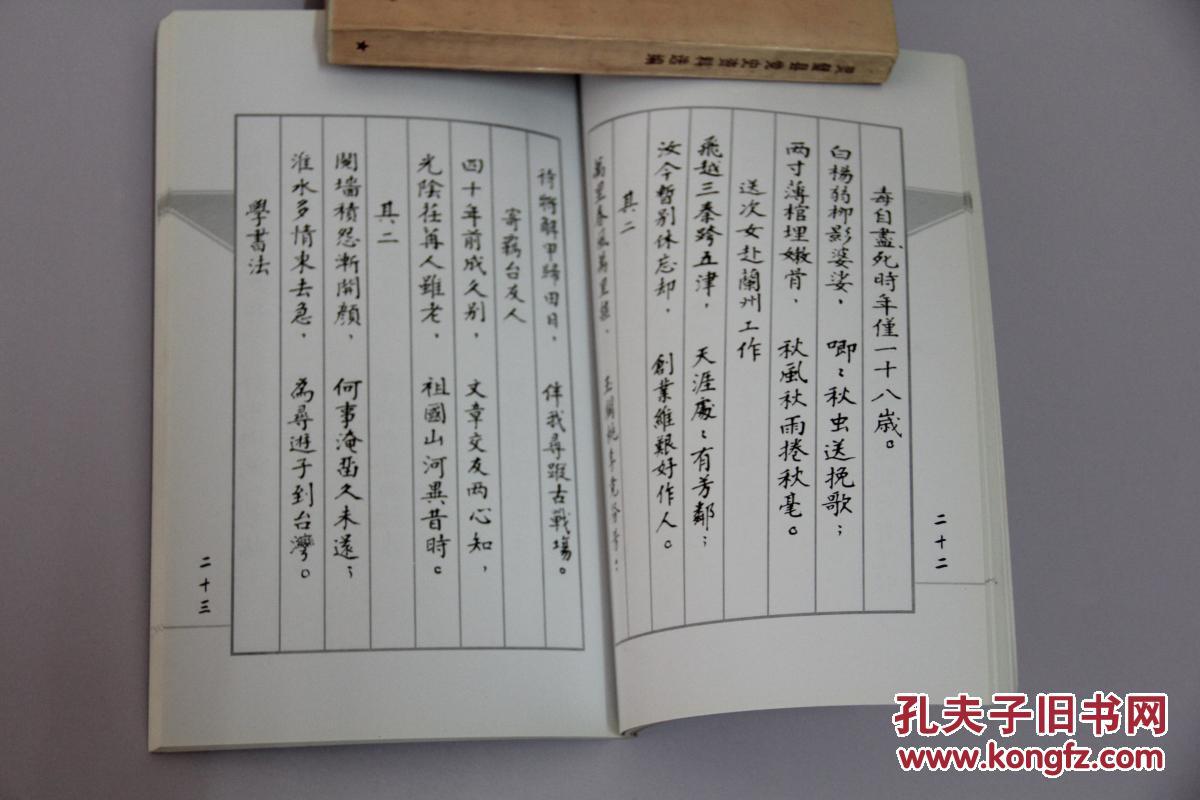 毒自盡,死時年僅一十八歲。
白楊弱柳影婆娑, 唧〻秋虫送挽歌;
两寸薄棺埋嫩骨, 秋風秋雨捲秋毫。
送次女赴蘭州工作
飛越三秦跨五津, 天涯處〻有芳鄰;
汝今暫别休忘却, 創業維艱好作人。
其二
萬里春風萬里
二十二
待將解甲歸田日, 伴我尋蹤古戰場。
寄羁台友人
四十年前成久别, 文章交友两心知,
光陰荏苒人雖老, 祖國山河異昔時。
其二
鬩墻積怨漸開顔, 何事淹留久未還;
淮水多情東去急, 為尋遊子到台灣。
學書法
二十三
灵璧县党史资料选编
孔夫子旧书网
www.kongfz.com